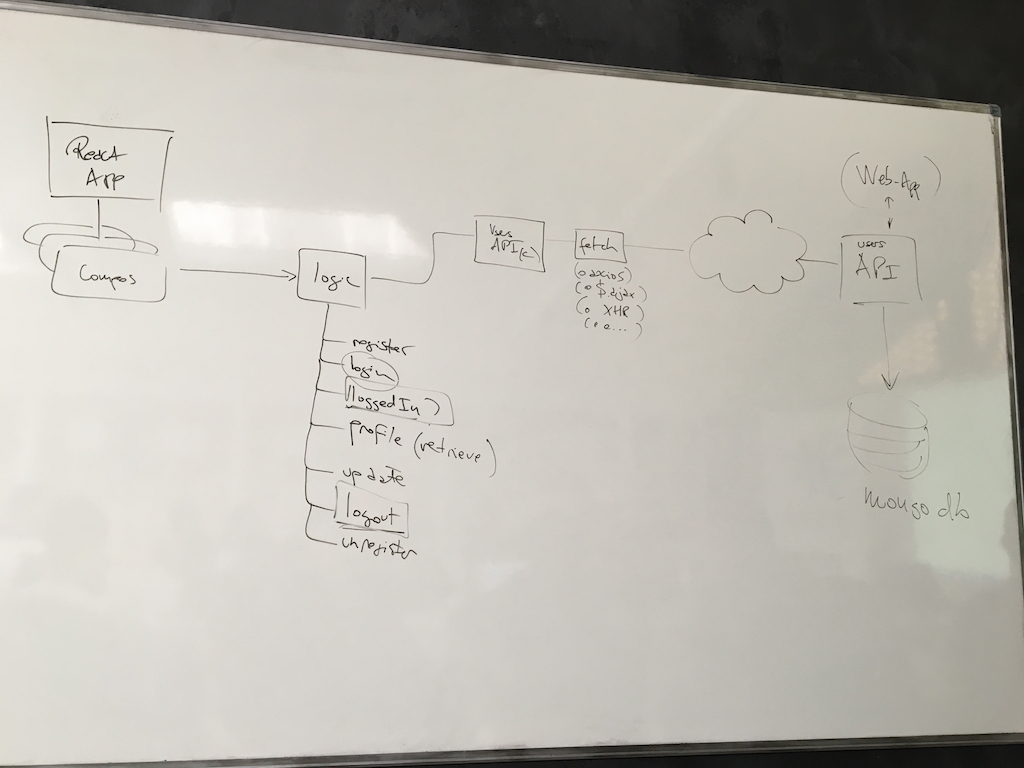 React
App
Compos
logic
register
login
loggedIn
profile (retrieve)
update
logout
unregister
API(c)
fetch
(o axios)
(o $.ajax)
(o XHR)
(o ...)
(Web-App)
users
API
mongo db